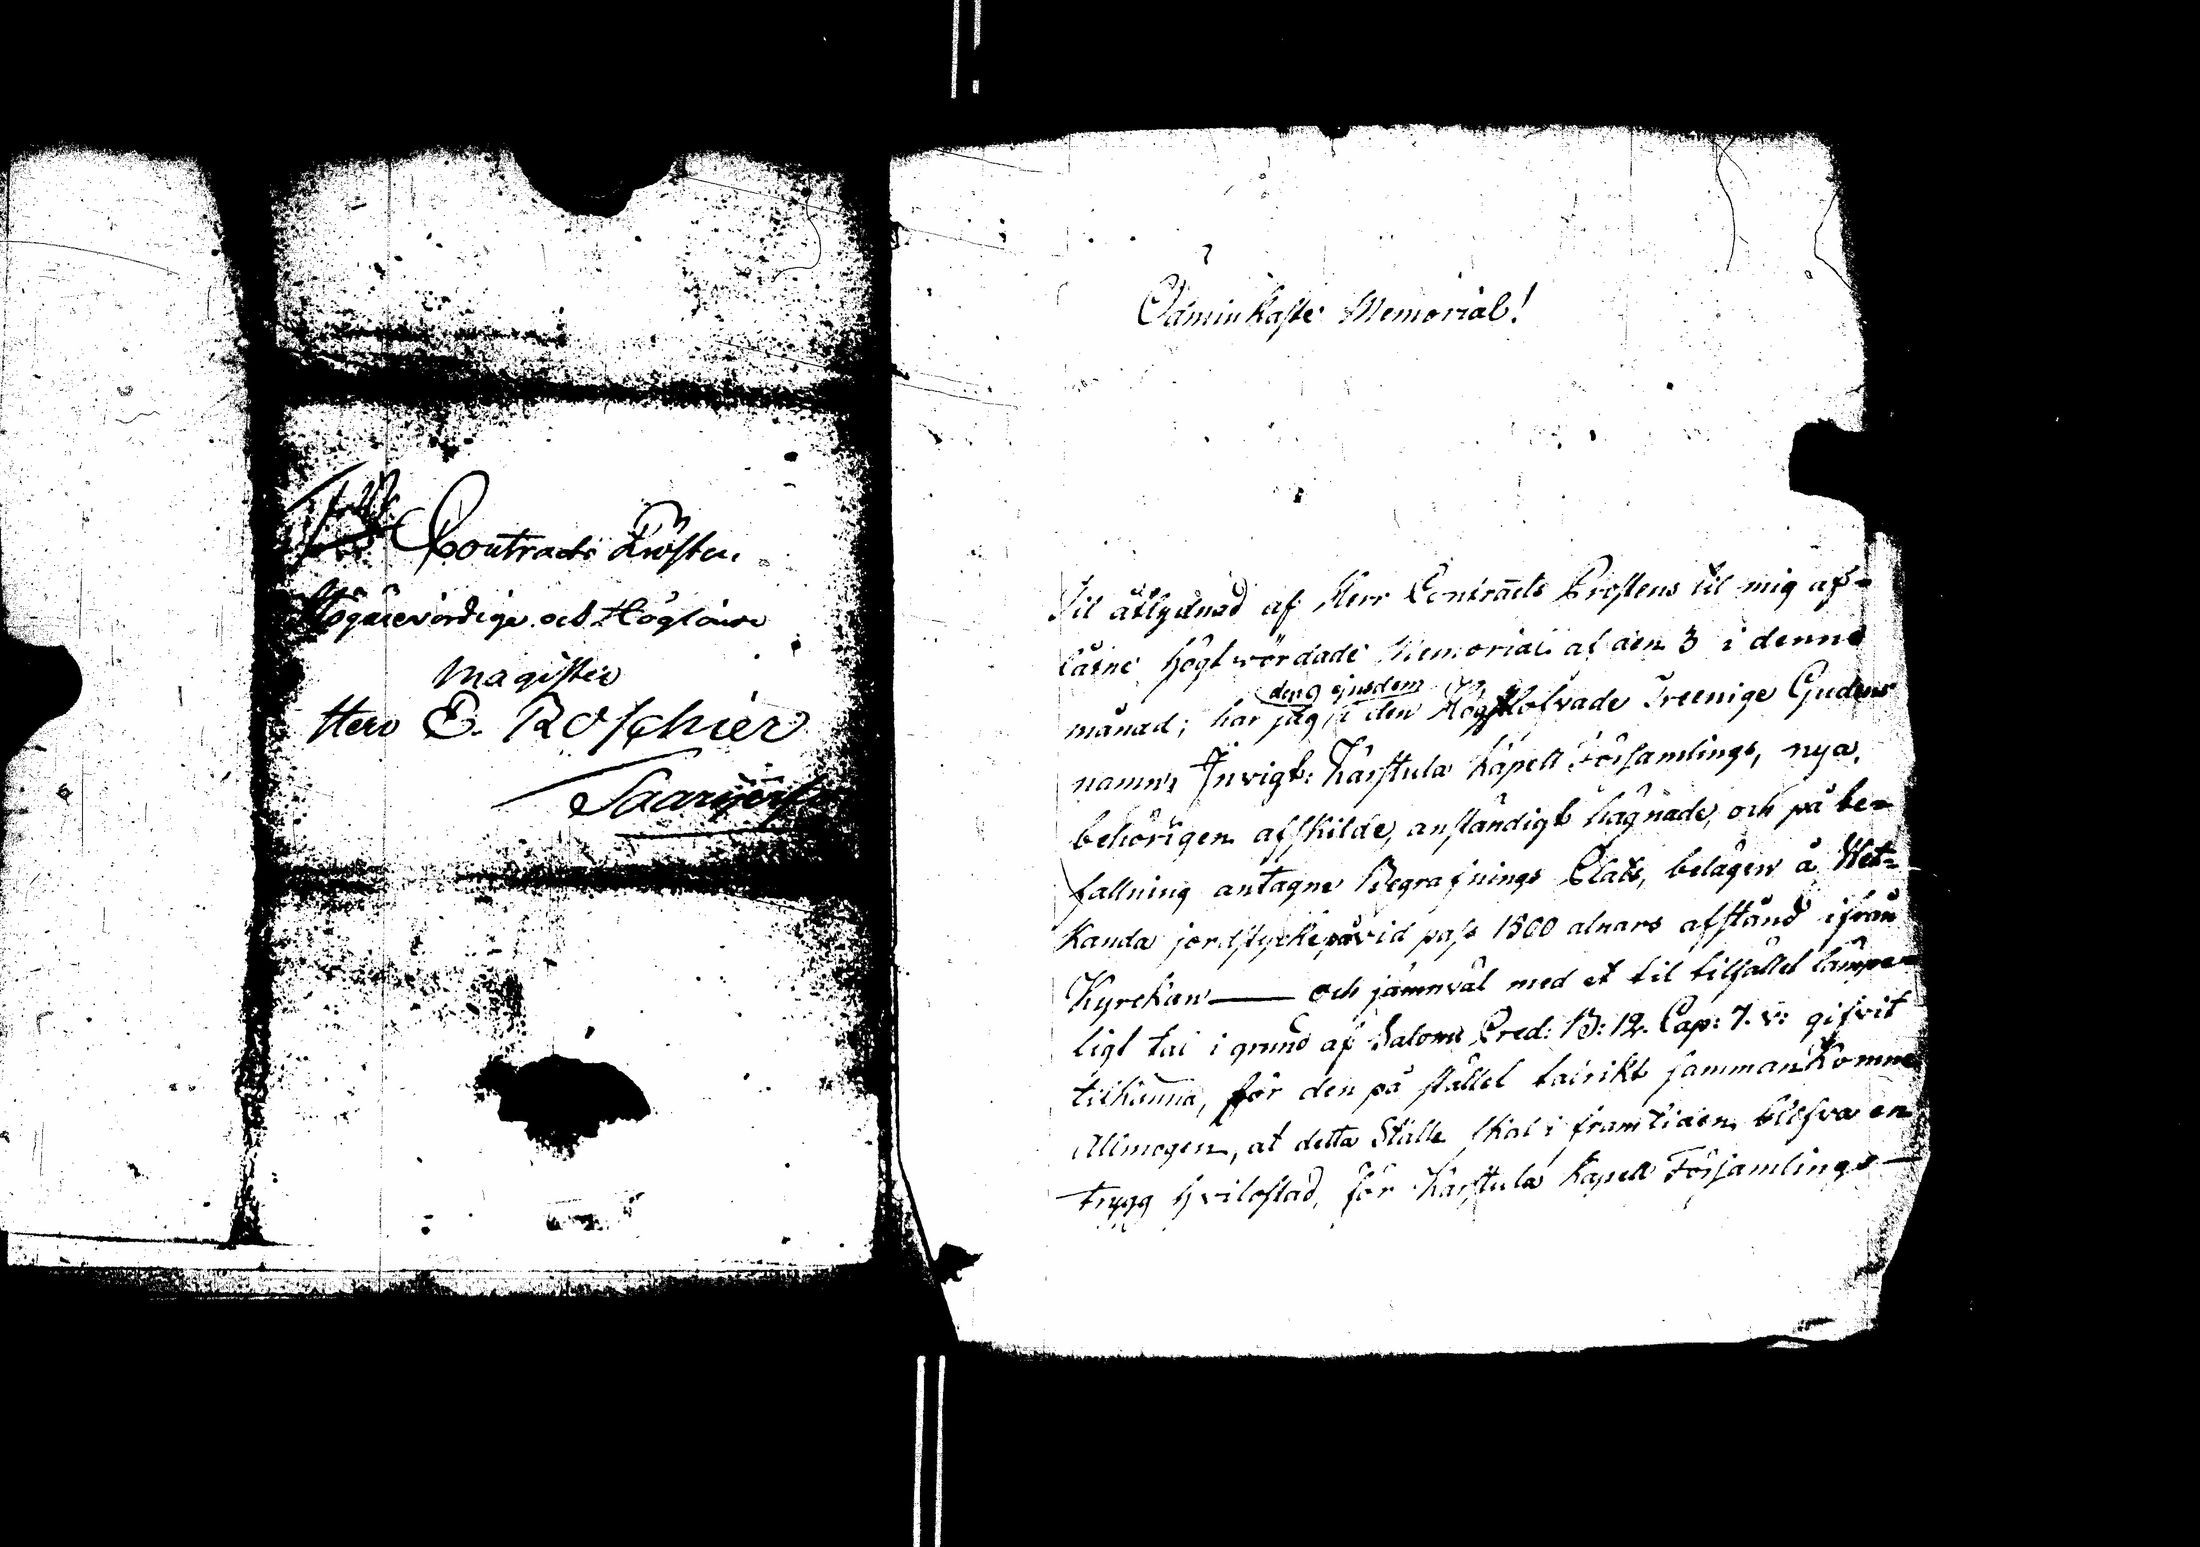 Contracts Prosten
Högärevördige och Höglärde
Magister
Herr E. Roschier
Saarijervi
Ödmiukaste Memorial!
Til åtlydnad af Herr Contracts Prostens til mig af-
låtne högtvördade Memorial af den 3 i denne
den 9 ejusdem
månad; har jag, i den Höghlofvade Treenige Gudens
namn, Invigt: Karstula Kapell Församlings, nya,
behörigen afskilde, anständigt hägnade, och på be-
fallning antagne Begrafnings Plats, belägen å Wet-
kanda jordstycke på vid pass 1500 alnars afstånd ifrån
Kyrckan — och jämnväl med et til tilfället lämpe-
ligt tal i grund af Salom: Pred: B: 12. Cap: 7. v: gifvit
tilkänna, för den på stället talrikt sammankomne
Allmogen, at detta Ställe skal i framtiden blifva en
trygg hvilostad, för Karstula Kapell Församlings —